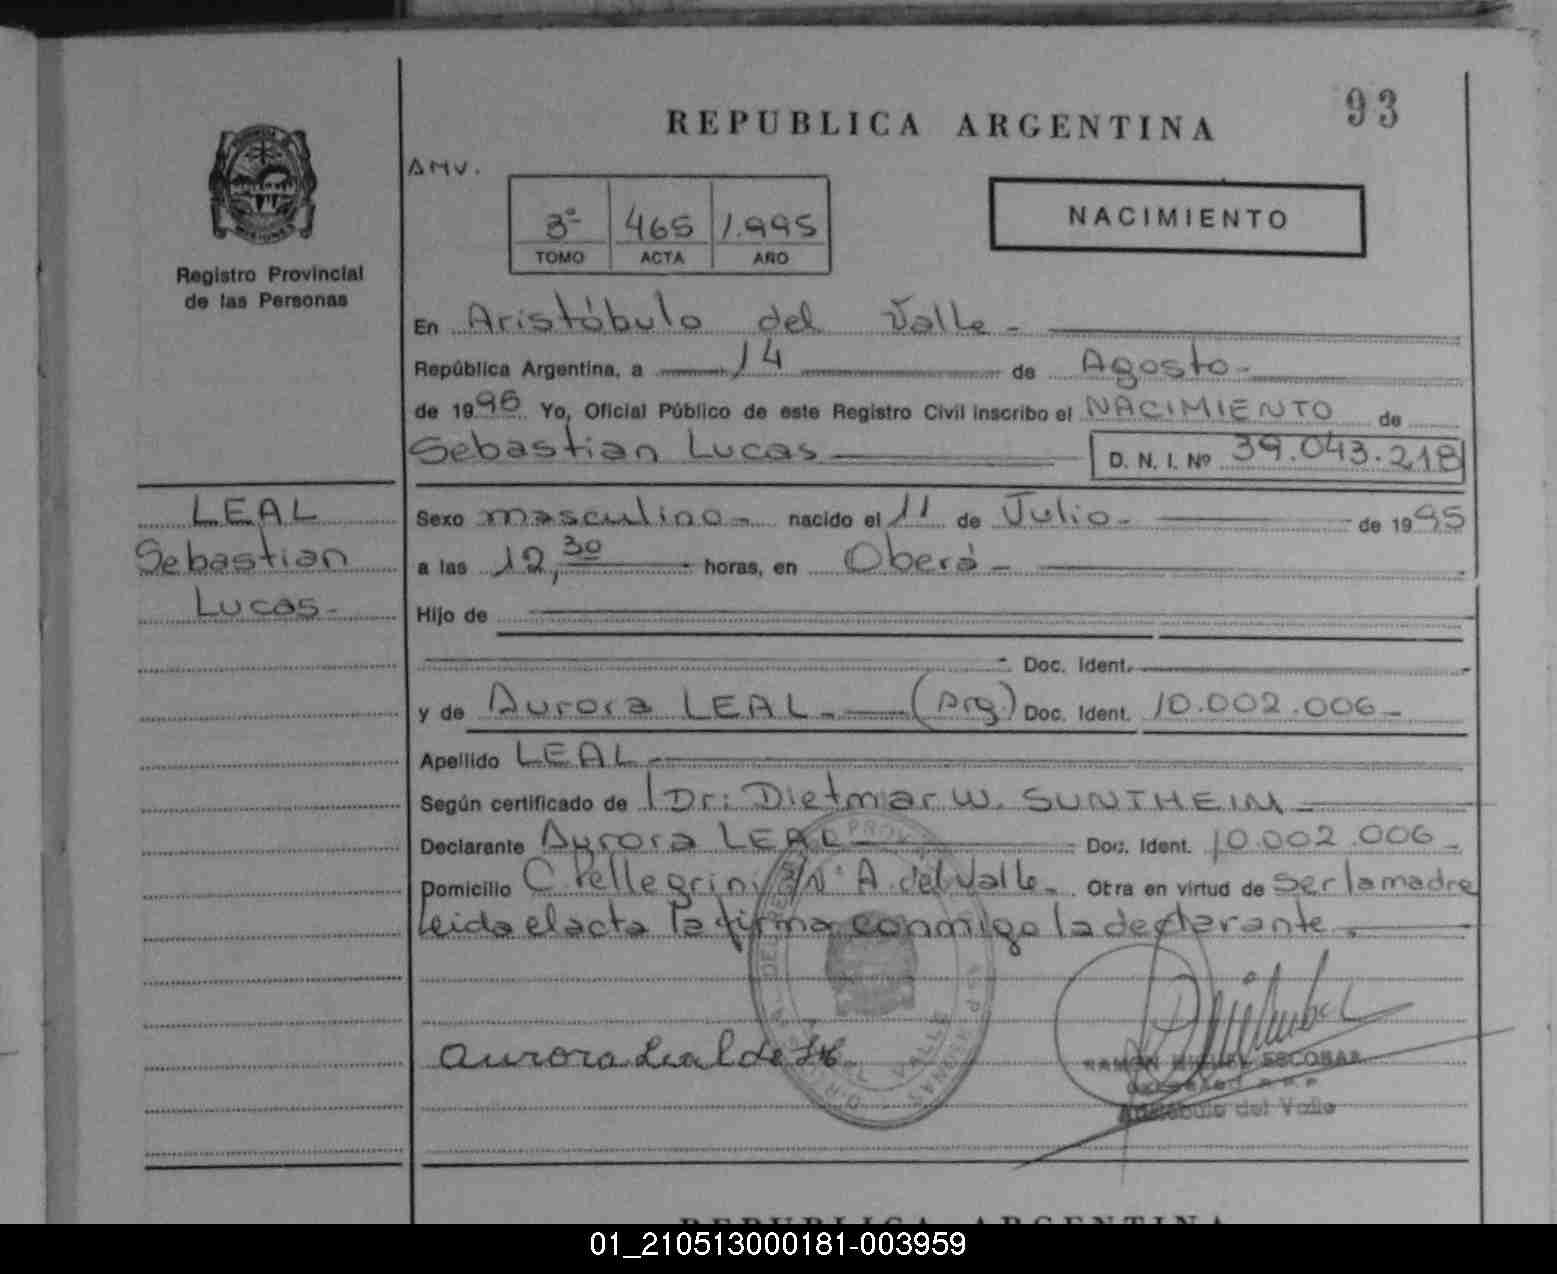 93
REPUBLICA ARGENTINA
AMV.
3º 465 1.995
TOMO ACTA AÑO
NACIMIENTO
Registro Provincial
de las Personas
En Aristóbulo del Valle -
República Argentina, a 14 de Agosto -
de 1995 Yo, Oficial Público de este Registro Civil inscribo el NACIMIENTO de
Sebastian Lucas D. N. I. Nº 39.043.218
LEAL
Sebastian
Lucas -
Sexo masculino - nacido el 11 de Julio - de 1995
a las 12,30 horas, en Oberá -
Hijo de
Doc. Ident.
y de Aurora LEAL - (Arg.) Doc. Ident. 10.002.006 -
Apellido LEAL -
Según certificado de Dr: Dietmar W. SUNTHEIM -
Declarante Aurora LEAL Doc. Ident. 10.002.006 -
Domicilio C. Pellegrini S/Nº A. del Valle - Otra en virtud de ser la madre
leida el acta la firma conmigo la declarante.
Aurora Leal de
RAMON MIGUEL ESCOBAR
Aristóbulo del Valle
REPUBLICA ARGENTINA
01_210513000181-003959